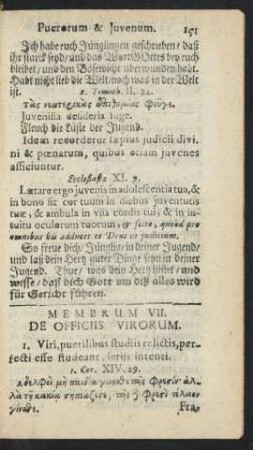 Puerorum & Juvenum. 151
Ich habe euch Jünglingen geschrieben/ daß
ihr starck seyd/ und das Wort Gottes bey euch
bleibet/ und den Bösewicht überwunden habt.
Habt nicht lieb die Welt/ noch was in der Welt
ist.
2. Timoth. II. 22.
τὰς νεωτερικὰς ἐπιθυμίας φεῦγε.
Juvenilia desideria fuge.
Fleuch die Lüste der Jugend.
Idem recordetur sæpius judicii divi-
ni & pœnarum, quibus etiam juvenes
afficiuntur.
Ecclesiastæ XI. 9.
Lætare ergo juvenis in adolescentia tua, & in
bono sit cor tuum in diebus juventutis
tuæ, & ambula in viis cordis tui, & in in-
tuitu oculorum tuorum, & scito, quòd pro
omnibus his adducet te Deus in judicium.
So freue dich/ Jüngling/ in deiner Jugend/
und laß dein Hertz guter Dinge seyn in deiner
Jugend. Thue/ was dein Hertz lüstet/ und
wisse/ daß dich Gott um diß alles wird
für Gericht führen.
MEMBRUM VII.
DE OFFICIIS VIRORUM.
1. Viri, puerilibus studiis relictis, per-
fecti esse studeant, seriis intenti.
1. Cor. XIV. 29.
Fra-